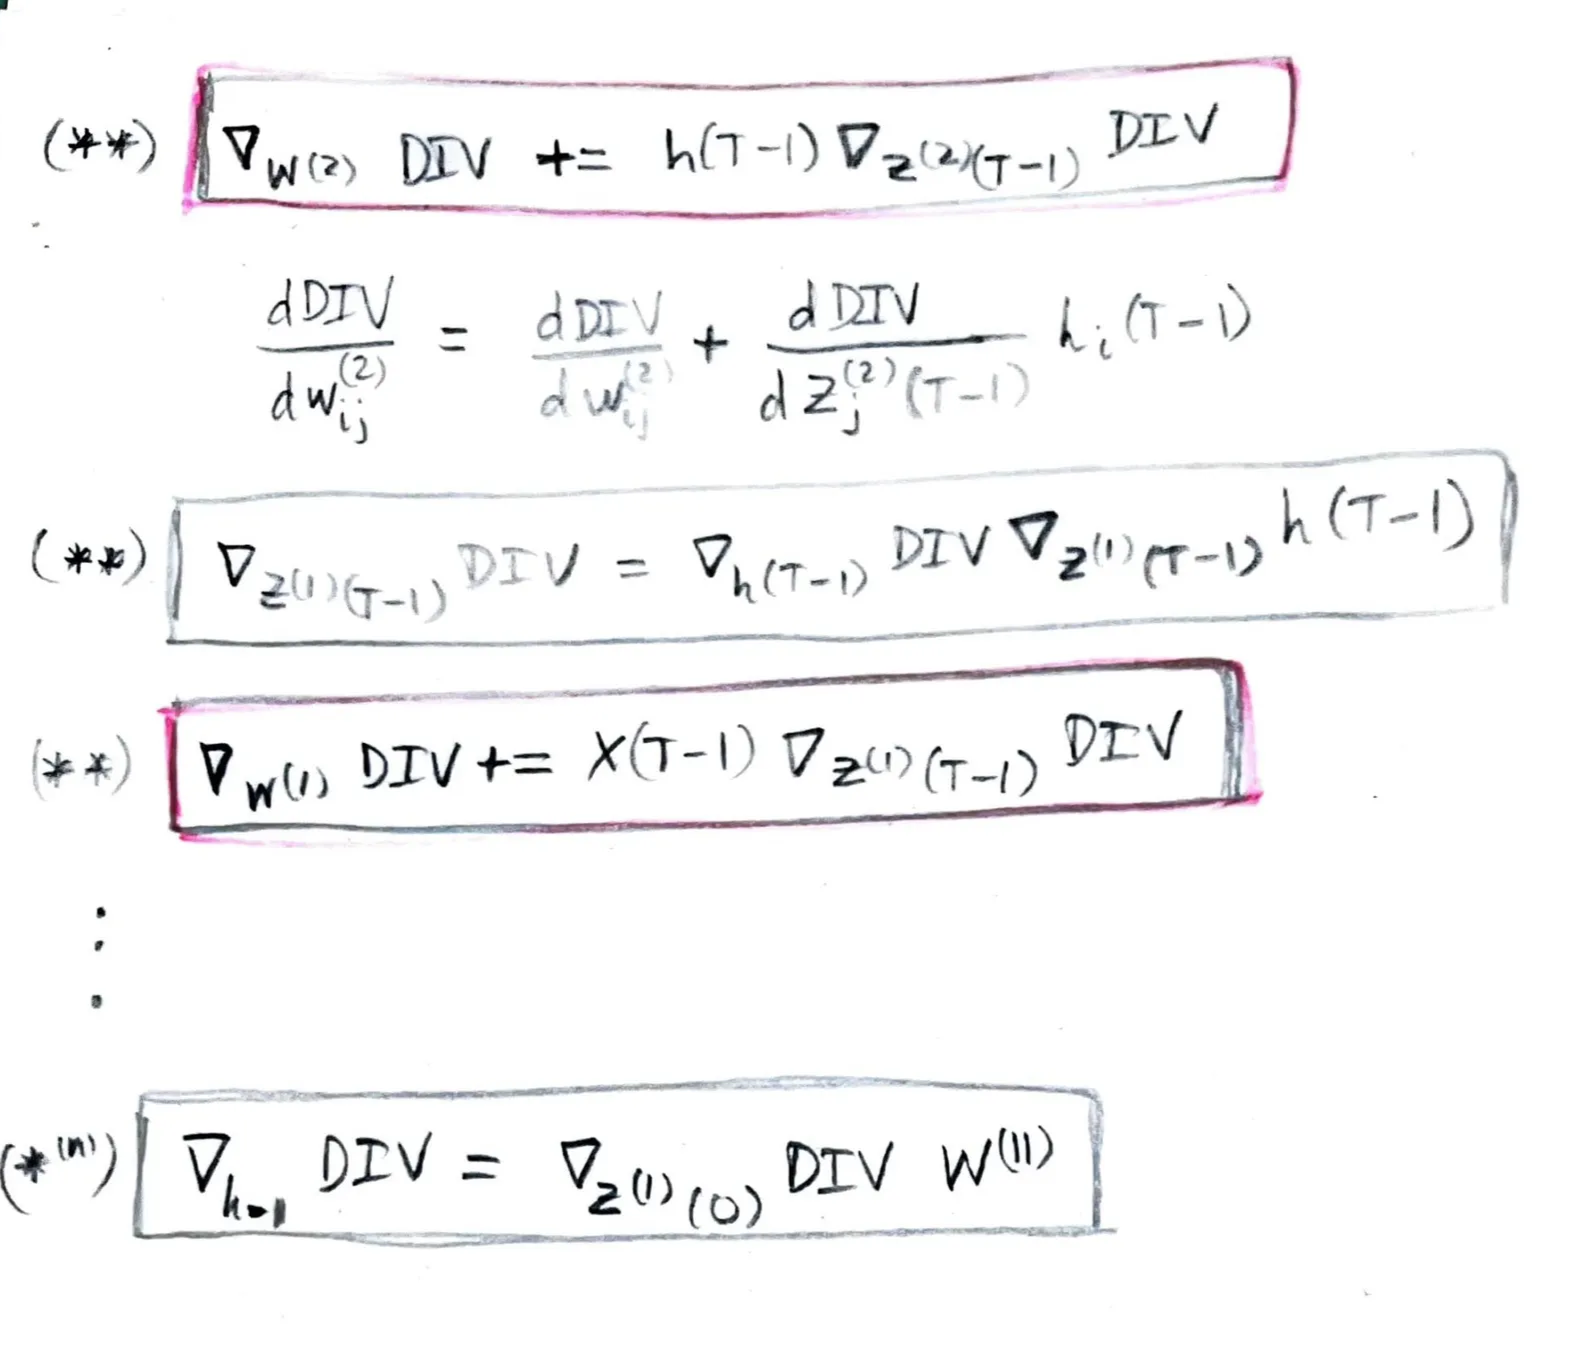 (**) ∇_{W(2)} DIV += h(T-1) ∇_{Z(2)(T-1)} DIV
dDIV/dw_{ij}^{(2)} = dDIV/dw_{ij}^{(2)} + dDIV/dZ_j^{(2)}(T-1) h_i(T-1)
(**) ∇_{Z(1)(T-1)} DIV = ∇_{h(T-1)} DIV ∇_{Z(1)(T-1)} h(T-1)
(**) ∇_{W(1)} DIV += X(T-1) ∇_{Z(1)(T-1)} DIV
⋮
(*^{(n)}) ∇_{h-1} DIV = ∇_{Z(1)(0)} DIV W^{(11)}